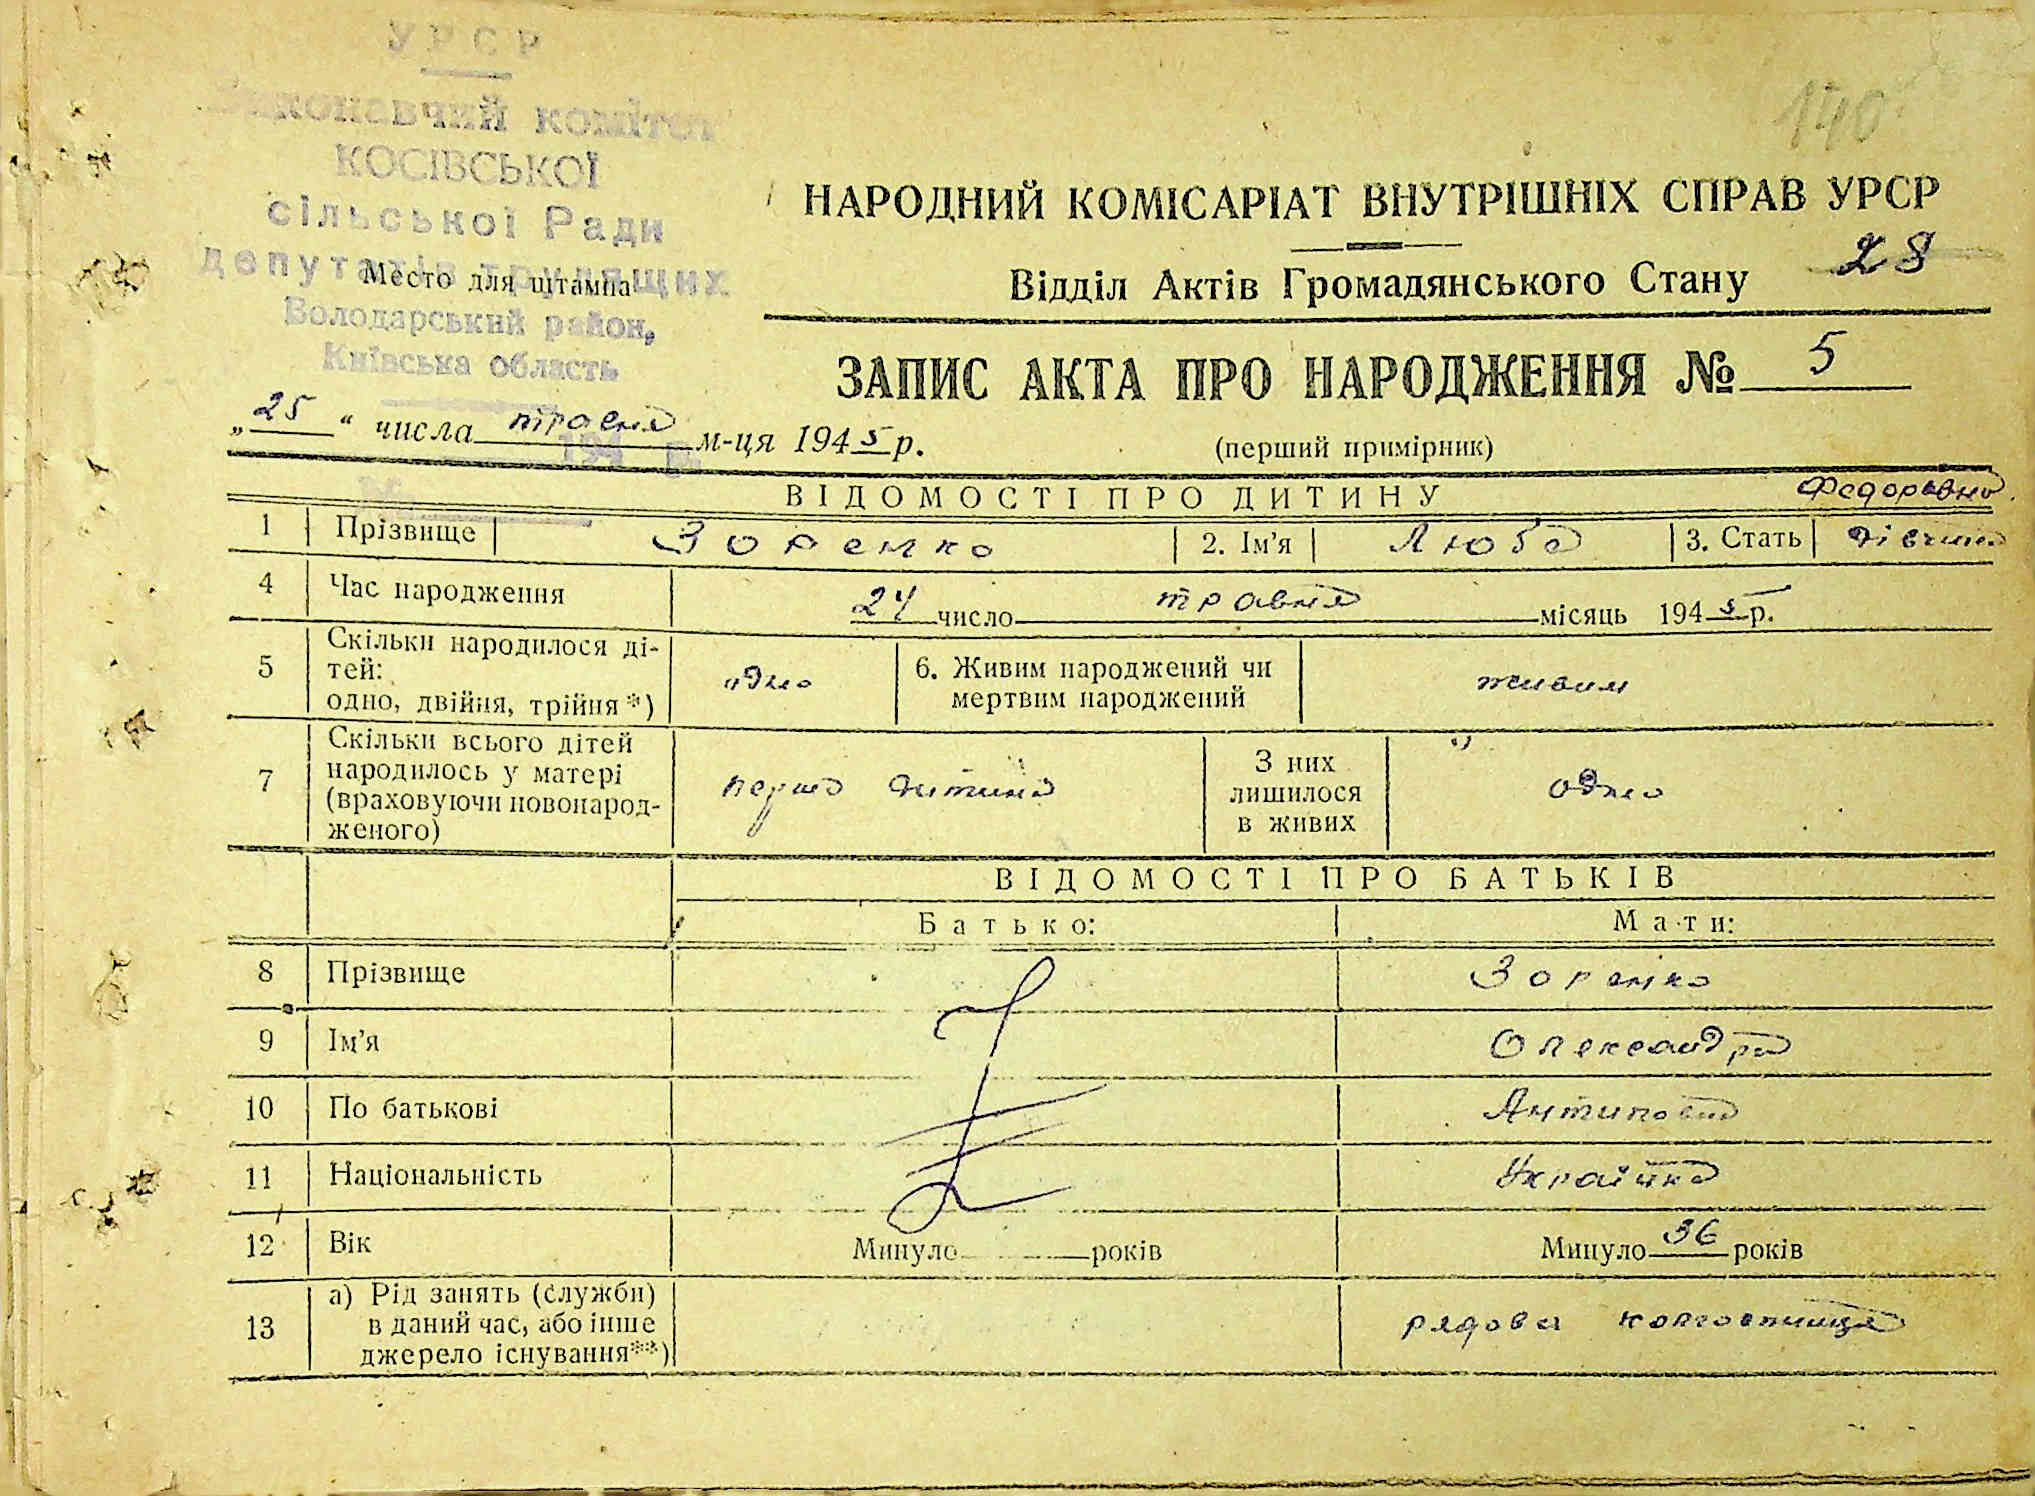 УРСР
Виконавчий комітет
КОСІВСЬКОЇ
сільської Ради
депутатів трудящих
Место для штампа
Володарський район,
Київська область
194 р.
№
140
НАРОДНИЙ КОМІСАРІАТ ВНУТРІШНІХ СПРАВ УРСР
28
Відділ Актів Громадянського Стану
ЗАПИС АКТА ПРО НАРОДЖЕННЯ № 5
„25“ числа травня м-ця 1945 р.
(перший примірник)
ВІДОМОСТІ ПРО ДИТИНУ
Федоровна
1 Прізвище Зоренко 2. Ім’я Люба 3. Стать дівчина
4 Час народження 24 число травня місяць 1945 р.
5 Скільки народилося ді-
тей:
одно, двійня, трійня*) одно
6. Живим народжений чи
мертвим народжений живим
7 Скільки всього дітей
народилось у матері
(враховуючи новонарод-
женого) перша дитина
З них
лишилося
в живих одно
ВІДОМОСТІ ПРО БАТЬКІВ
Батько: Мати:
8 Прізвище Зоренко
9 Ім’я Олександра
10 По батькові Антиповна
11 Національність Українка
12 Вік Минуло років Минуло 36 років
13 а) Рід занять (служби)
в даний час, або інше
джерело існування**) рядова колгоспниця